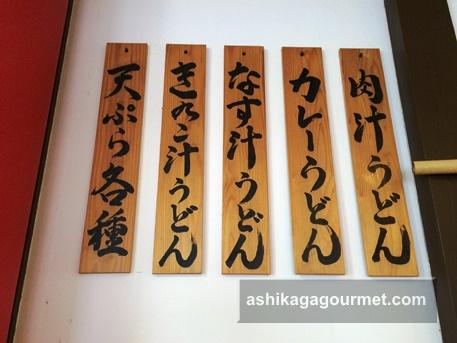 肉汁うどん
カレーうどん
なす汁うどん
きのこ汁うどん
天ぷら各種
ashikagagourmet.com